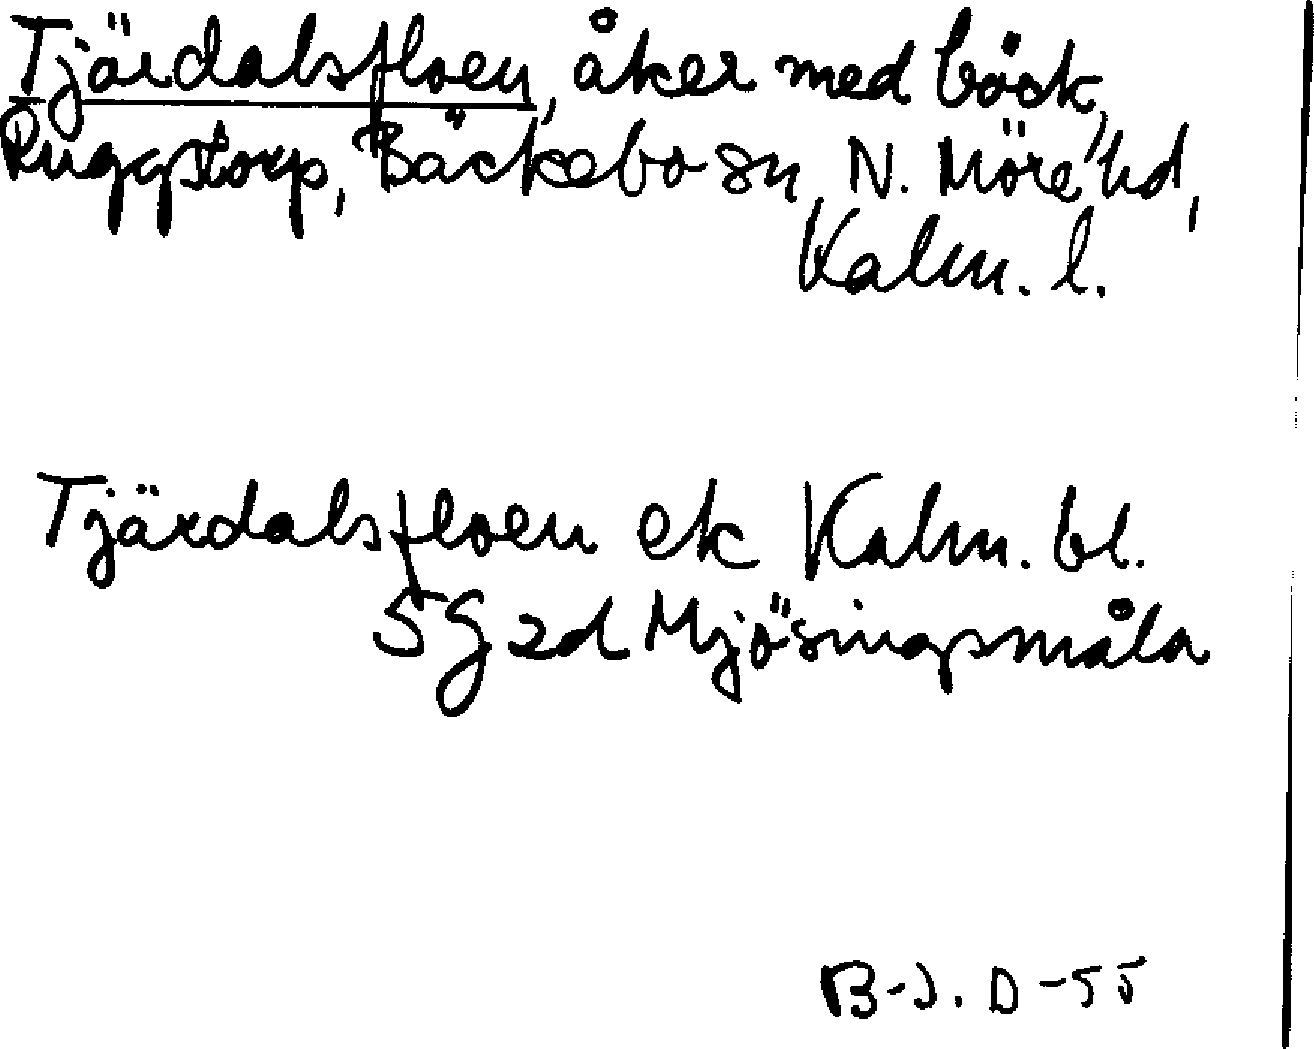 Tjärdalsfloen, åker med bäck,
Ruggstorp, Bäckebo sn, N. Möre hd,
Kalm. l.
Tjärdalsfloen ek Kalm. bl.
5G 2d Mjösingsmåla
B-J. D-55